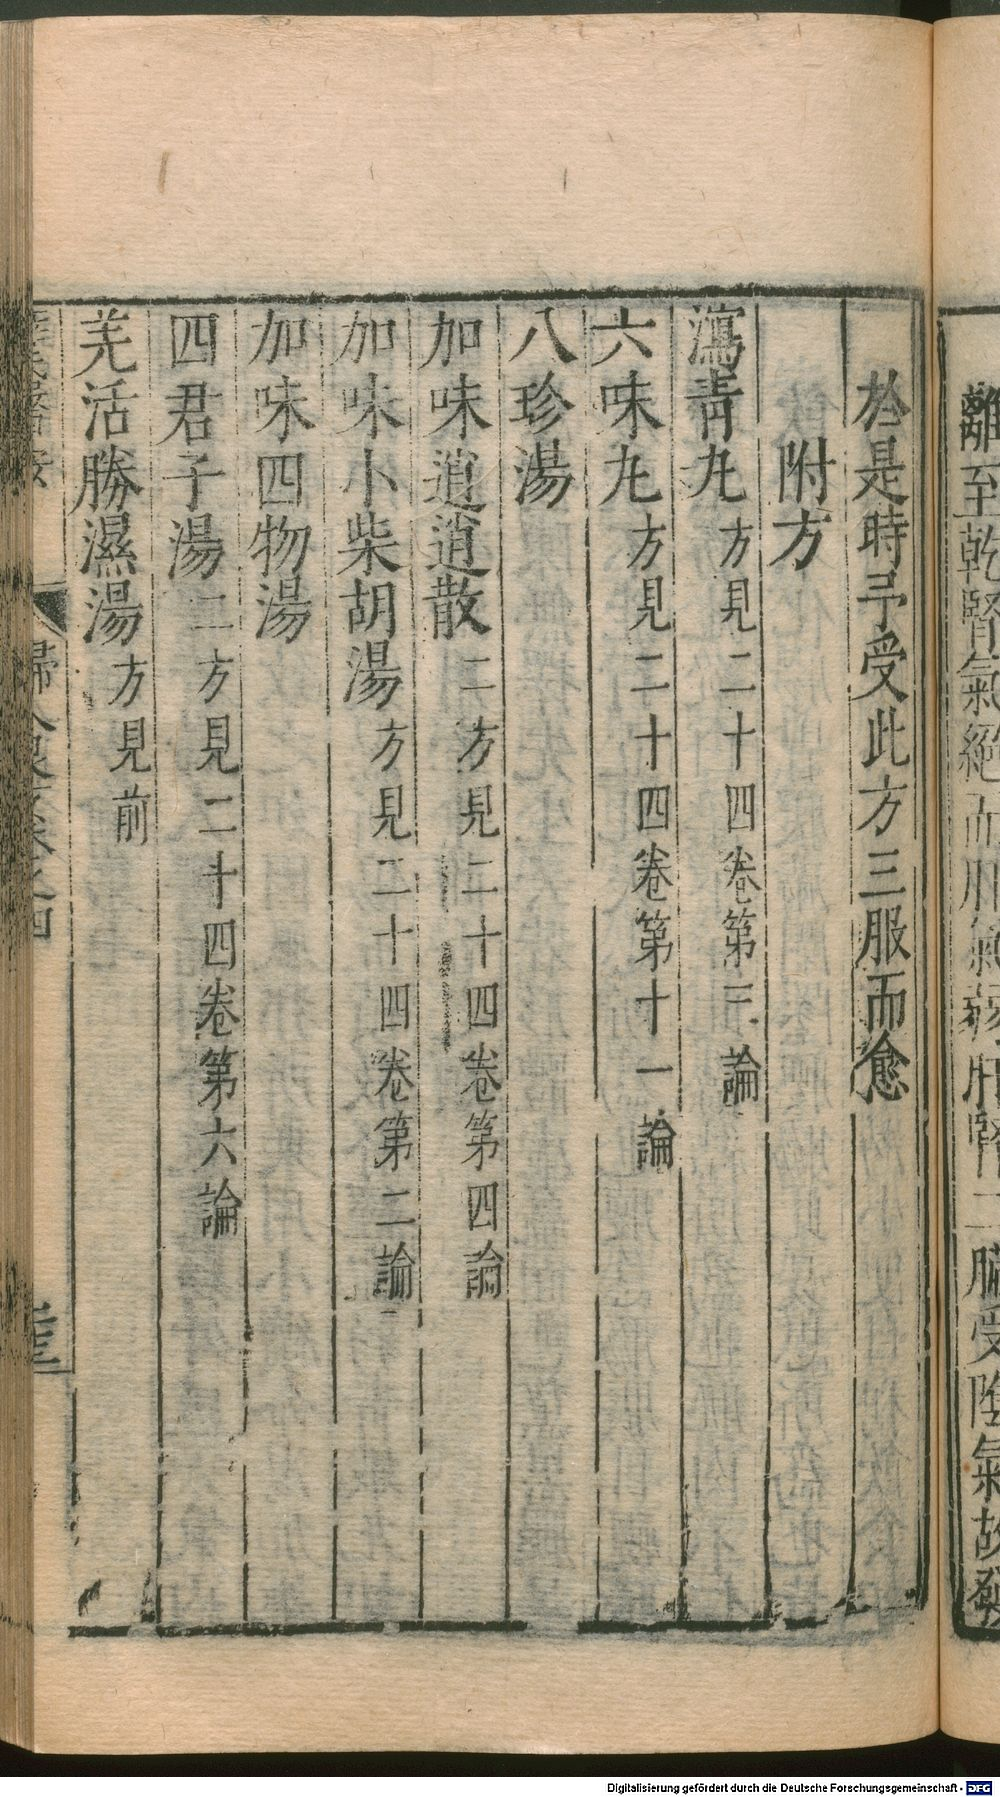 離至乾腎氣絕而肝氣弱肝腎二臟受陰氣故發
於是時予受此方三服而愈
附方
瀉青九方見二十四卷第三論
六味九方見二十四卷第十一論
八珍湯
加味逍遥散二方見二十四卷第四論
加味小柴胡湯方見二十四卷第二論
加味四物湯
四君子湯二方見二十四卷第六論
羌活勝濕湯方見前
Digitalisierung gefördert durch die Deutsche Forschungsgemeinschaft - DFG